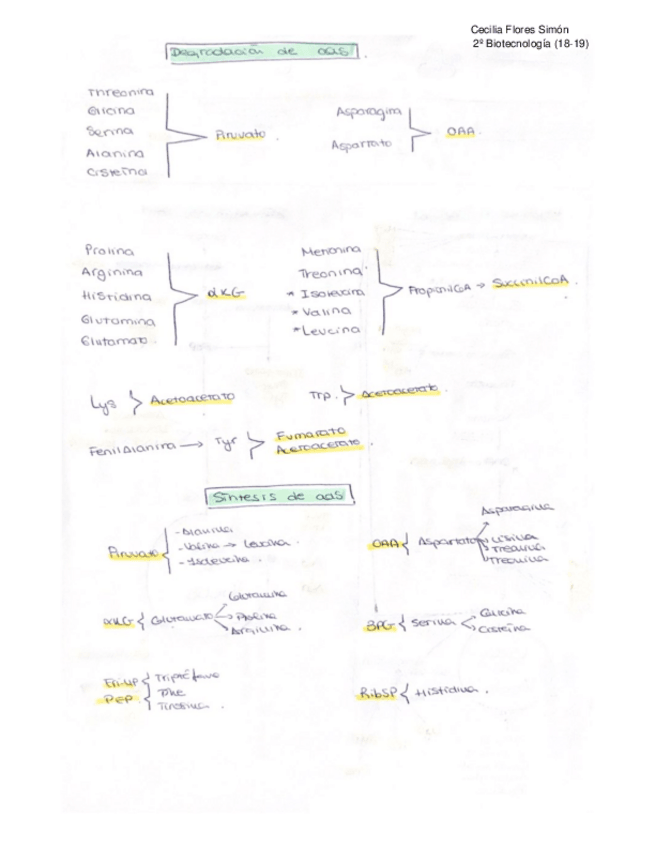 Cecilia Flores Simón
2º Biotecnología (18-19)
Degradación de aas.
Threonina
Glicina
Serina
Alanina
Cisteína
Piruvato
Asparagina
Aspartato
OAA
Prolina
Arginina
Histidina
Glutamina
Glutamato
αKG
Metionina
Treonina
* Isoleucina
* Valina
* Leucina
PropionilCoA → SuccinilCoA.
Lys } Acetoacetato
Trp. } Acetoacetato.
Fenilalanina → Tyr
Fumarato
Acetoacetato.
Síntesis de aas
Piruvato
- Alanina
- Valina → Leucina.
- Isoleucina.
OAA { Aspartato
Asparagina
Lisina
Treonina
αKG { Glutamato
Glutamina
Prolina
Arginina.
3PG { Serina
Glicina
Cisteína
Eri-4P
PEP
Triptófano
Phe
Tirosina.
Rib5P { Histidina.